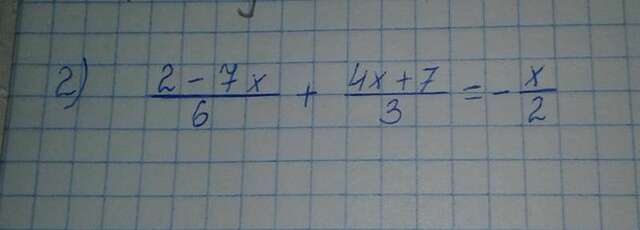 2) (2 - 7x)/6 + (4x + 7)/3 = - x/2